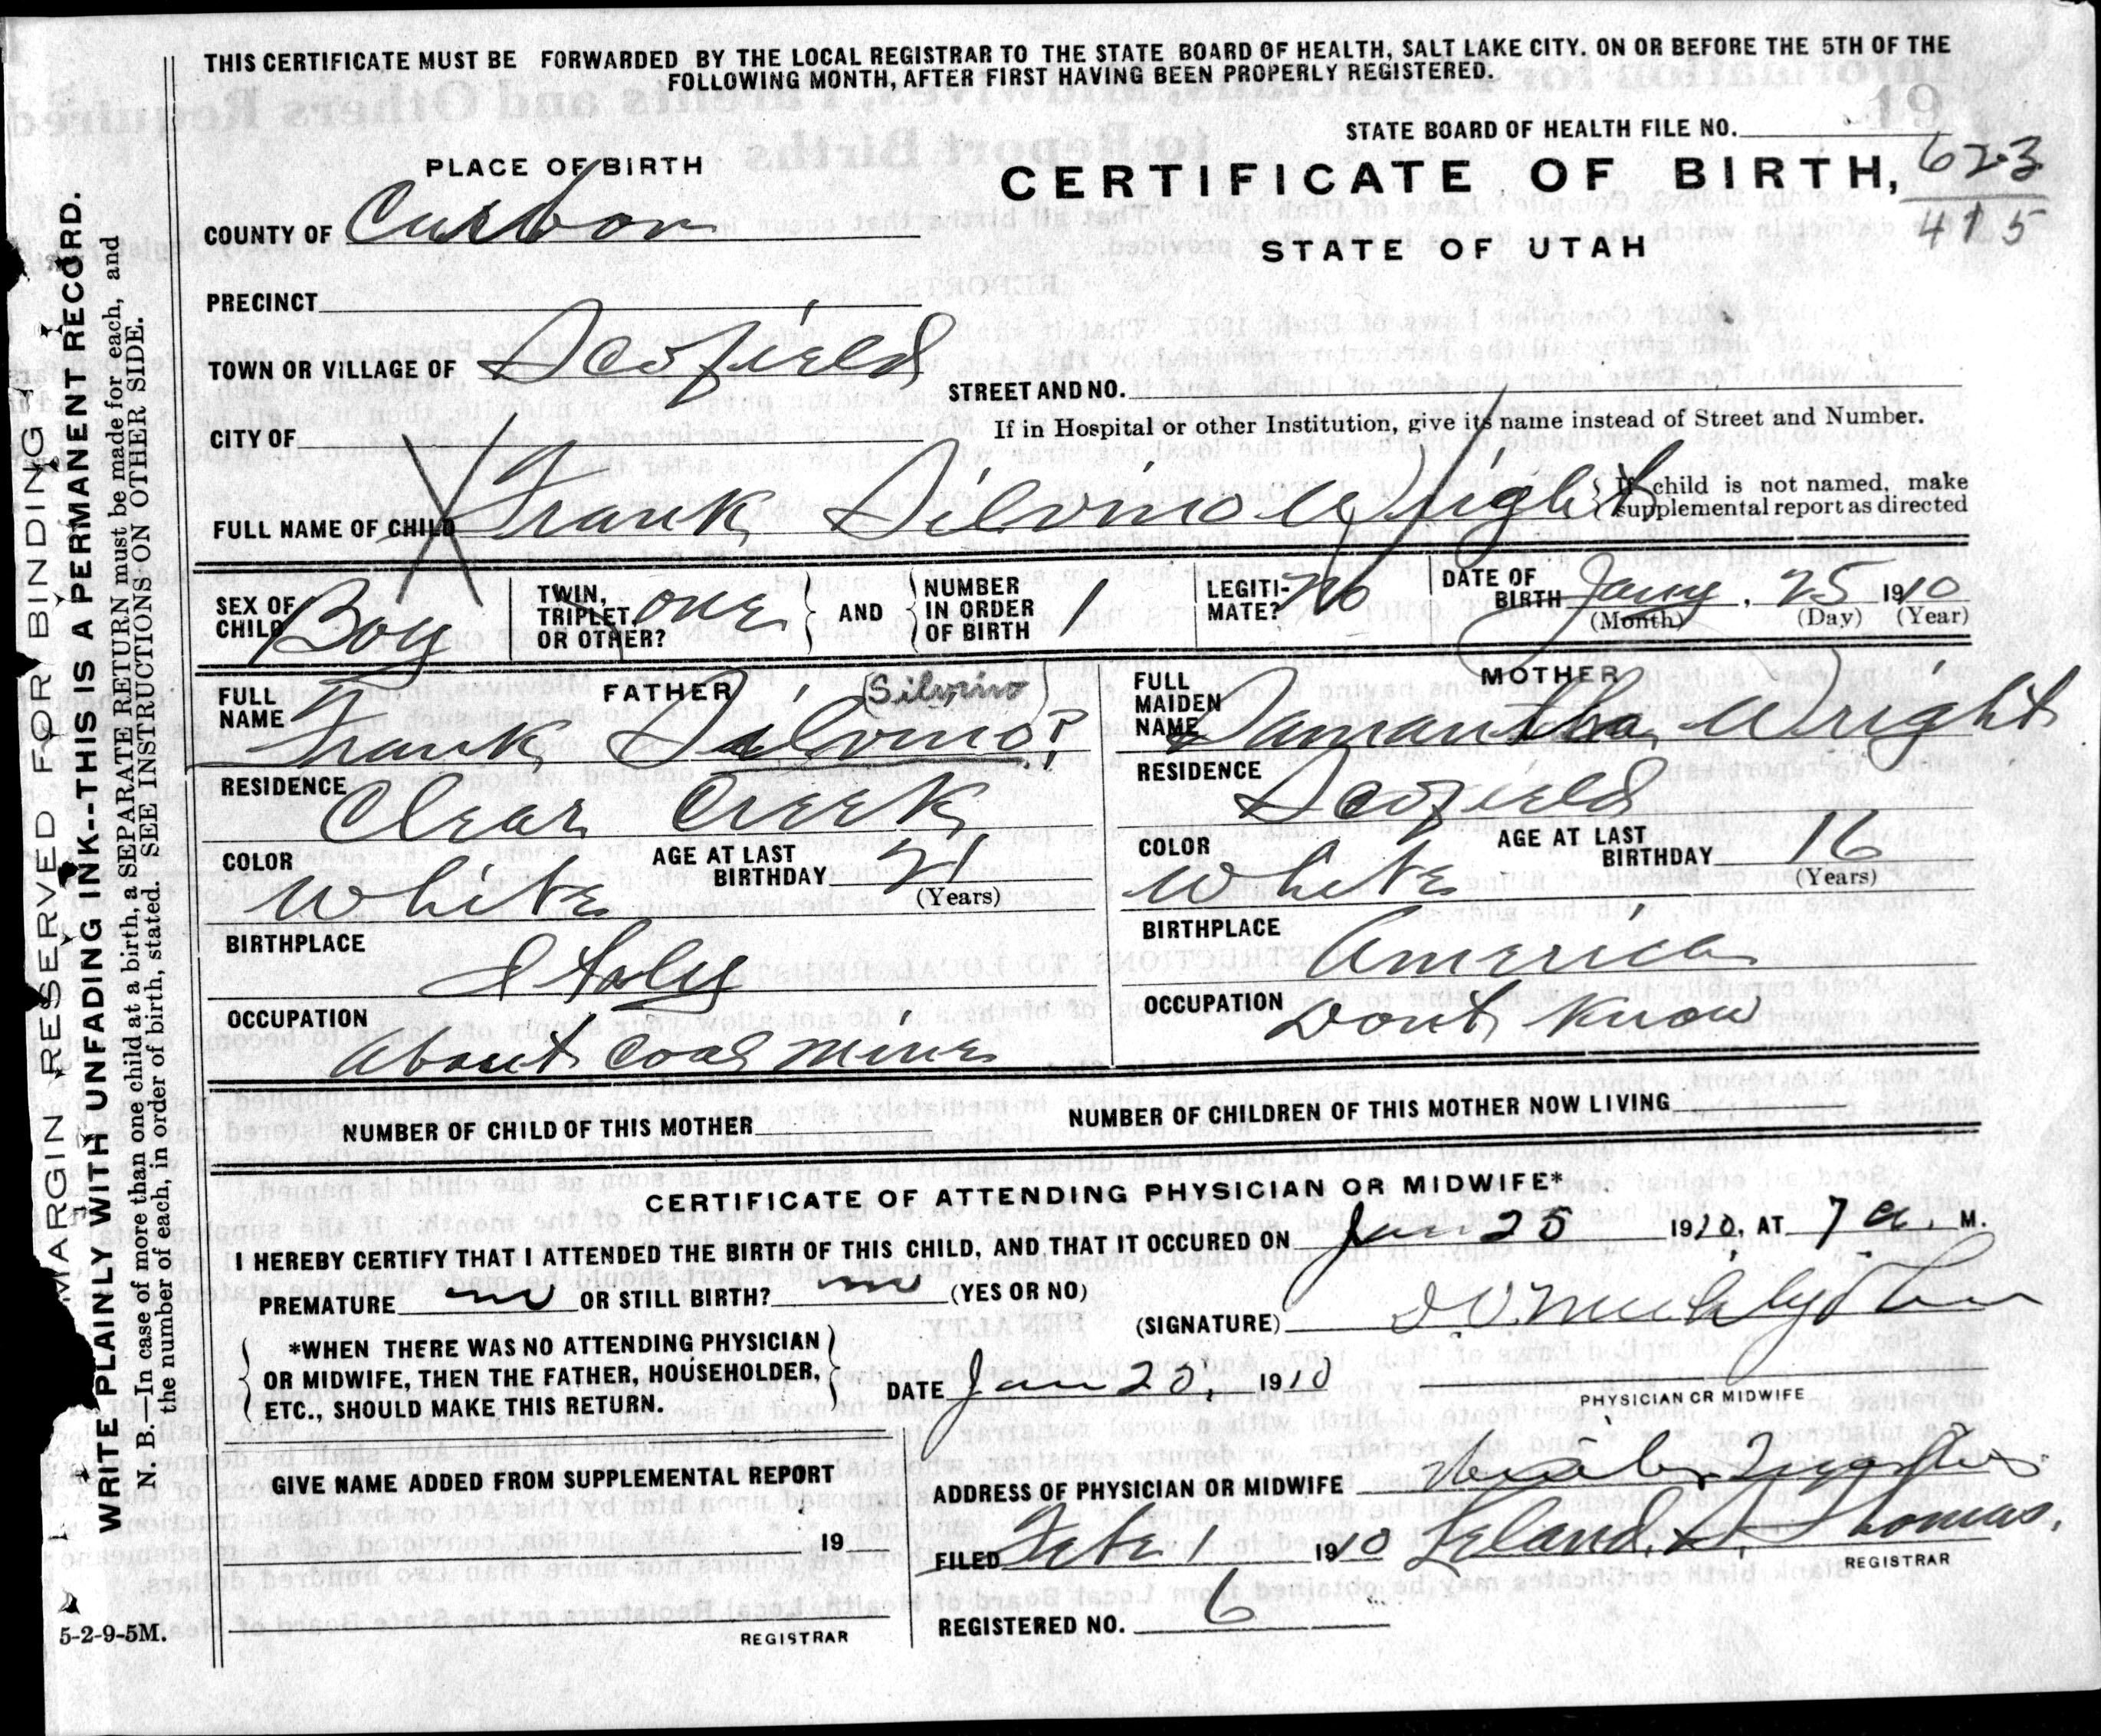 THIS CERTIFICATE MUST BE FORWARDED BY THE LOCAL REGISTRAR TO THE STATE BOARD OF HEALTH, SALT LAKE CITY. ON OR BEFORE THE 5TH OF THE
FOLLOWING MONTH, AFTER FIRST HAVING BEEN PROPERLY REGISTERED.
19
STATE BOARD OF HEALTH FILE NO.
PLACE OF BIRTH
CERTIFICATE OF BIRTH, 623
415
COUNTY OF Carbon
STATE OF UTAH
PRECINCT
TOWN OR VILLAGE OF Scofield
STREET AND NO.
CITY OF
If in Hospital or other Institution, give its name instead of Street and Number.
FULL NAME OF CHILD Frank Silvino Wright
If child is not named, make
supplemental report as directed
SEX OF CHILD Boy
TWIN, TRIPLET, OR OTHER? one
AND
NUMBER IN ORDER OF BIRTH 1
LEGITI-MATE? No
DATE OF BIRTH Jany. 25 1910
(Month) (Day) (Year)
FATHER
FULL NAME Frank Silvino?
(Silvino)
RESIDENCE
Clear Creek
COLOR
White
AGE AT LAST BIRTHDAY 21
(Years)
BIRTHPLACE
Italy
OCCUPATION
about coal mines
MOTHER
FULL MAIDEN NAME Samantha Wright
RESIDENCE
Scofield
COLOR
White
AGE AT LAST BIRTHDAY 16
(Years)
BIRTHPLACE
America
OCCUPATION
Dont Know
NUMBER OF CHILD OF THIS MOTHER
NUMBER OF CHILDREN OF THIS MOTHER NOW LIVING
CERTIFICATE OF ATTENDING PHYSICIAN OR MIDWIFE*
I HEREBY CERTIFY THAT I ATTENDED THE BIRTH OF THIS CHILD, AND THAT IT OCCURED ON Jan 25 1910, AT 7 a. M.
PREMATURE no OR STILL BIRTH? no (YES OR NO)
(SIGNATURE)
*WHEN THERE WAS NO ATTENDING PHYSICIAN
OR MIDWIFE, THEN THE FATHER, HOUSEHOLDER,
ETC., SHOULD MAKE THIS RETURN.
DATE Jan 1910
PHYSICIAN OR MIDWIFE
GIVE NAME ADDED FROM SUPPLEMENTAL REPORT
19
REGISTRAR
ADDRESS OF PHYSICIAN OR MIDWIFE
FILED Feb 1 1910 Leland H. Thomas.
REGISTRAR
REGISTERED NO. 6
MARGIN RESERVED FOR BINDING
WRITE PLAINLY WITH UNFADING INK--THIS IS A PERMANENT RECORD.
N. B.—In case of more than one child at a birth, a SEPARATE RETURN must be made for each, and
the number of each, in order of birth, stated. SEE INSTRUCTIONS ON OTHER SIDE.
5-2-9-5M.